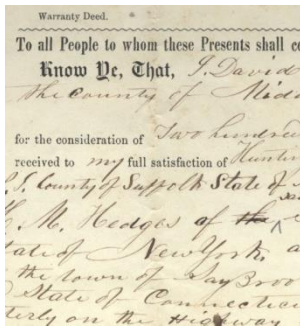 Warranty Deed.
To all People to whom these Presents shall co
Know Ye, That, I, David
the County of Midd
for the consideration of Two hundred
received to my full satisfaction of Hunti
S. County of Suffolk State of
H. M. Hedges of the
State of New York, a
the town of Say Broo
State of Connectic
terly on the Highway